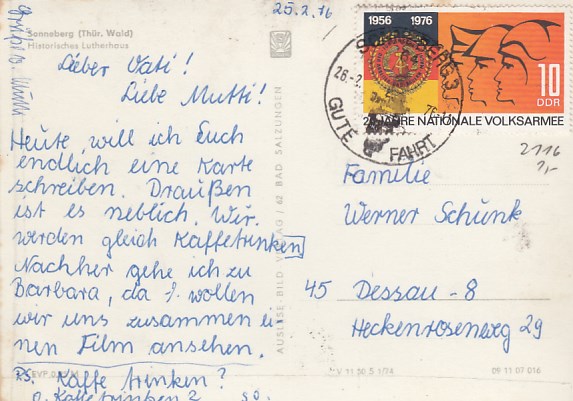 25.2.76
Sonneberg (Thür. Wald)
Historisches Lutherhaus
Lieber Vati!
Liebe Mutti!
Heute will ich Euch
endlich eine Karte
schreiben. Draußen
ist es neblich. Wir
werden gleich Kaffetrinken
Nachher gehe ich zu
Barbara, da wollen
wir uns zusammen ei
nen Film ansehen.
PS. Kaffe trinken?
o. Kaffetrinken? so.
AUSLESE-BILD-VERLAG / 62 BAD SALZUNGEN
1956 1976
10
DDR
20 JAHRE NATIONALE VOLKSARMEE
GUTE FAHRT
2116
Familie
Werner Schunk
45 Dessau - 8
Heckenrosenweg 29
V 11 50 S 1/74
09 11 07 016